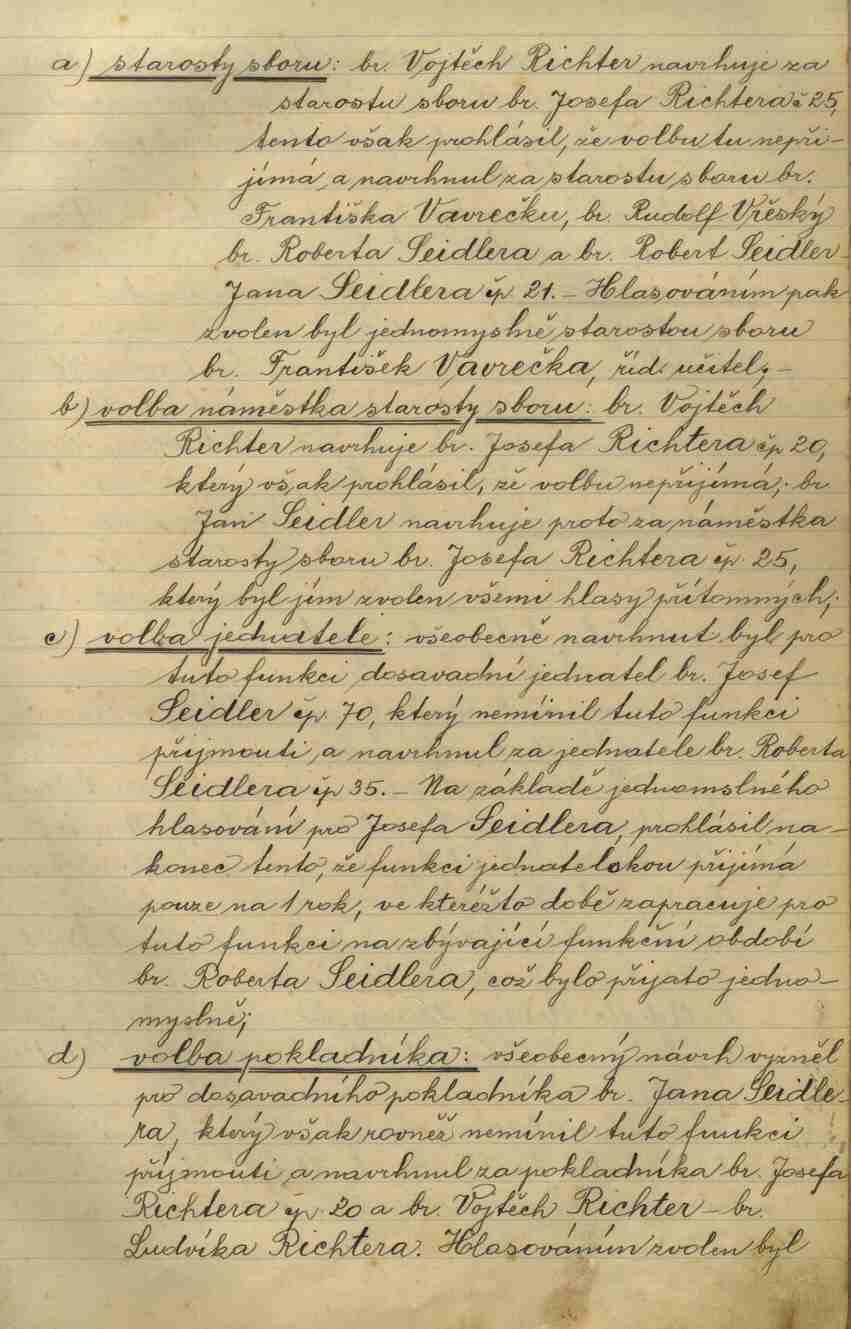 a) starosty sboru: br. Vojtěch Richter navrhuje za
starostu sboru br. Josefa Richtera č 25,
tento však prohlásil, že volbu tu nepři-
jímá, a navrhnul za starostu sboru br.
Františka Vavrečku, br. Rudolf Vřěský
br. Roberta Seidlera a br. Robert Seidler -
Jana Seidlera čp. 21. - Hlasováním pak
zvolen byl jednomyslně starostou sboru
br. František Vavrečka, říd. učitel; -
b) volba náměstka starosty sboru: br. Vojtěch
Richter navrhuje br. Josefa Richtera čp 20,
který však prohlásil, že volbu nepřijímá; br
Jan Seidler navrhuje proto za náměstka
starosty sboru br. Josefa Richtera čp. 25,
který byl jím zvolen všemi hlasy přítomných;
c) volba jednatele: všeobecně navrhnut byl pro
tuto funkci dosavadní jednatel br. Josef
Seidler čp. 70, který nemínil tuto funkci
přijmouti, a navrhnul za jednatele br. Roberta
Seidlera čp 35. - Na základě jednomslného
hlasování pro Josefa Seidlera, prohlásil na-
konec tento, že funkci jednatelskou přijímá
pouze na 1 rok, ve kteréžto době zapracuje pro
tuto funkci na zbývající funkční období
br. Roberta Seidlera, což bylo přijato jedno-
myslně;
d) volba pokladníka: všeobecný návrh vyzněl
pro dosavadního pokladníka br. Jana Seidle-
ra, který však rovněž nemínil tuto funkci
příjmouti a navrhnul za pokladníka br. Josefa
Richtera čp. 20 a br. Vojtěch Richter - br.
Ludvíka Richtera. Hlasováním zvolen byl